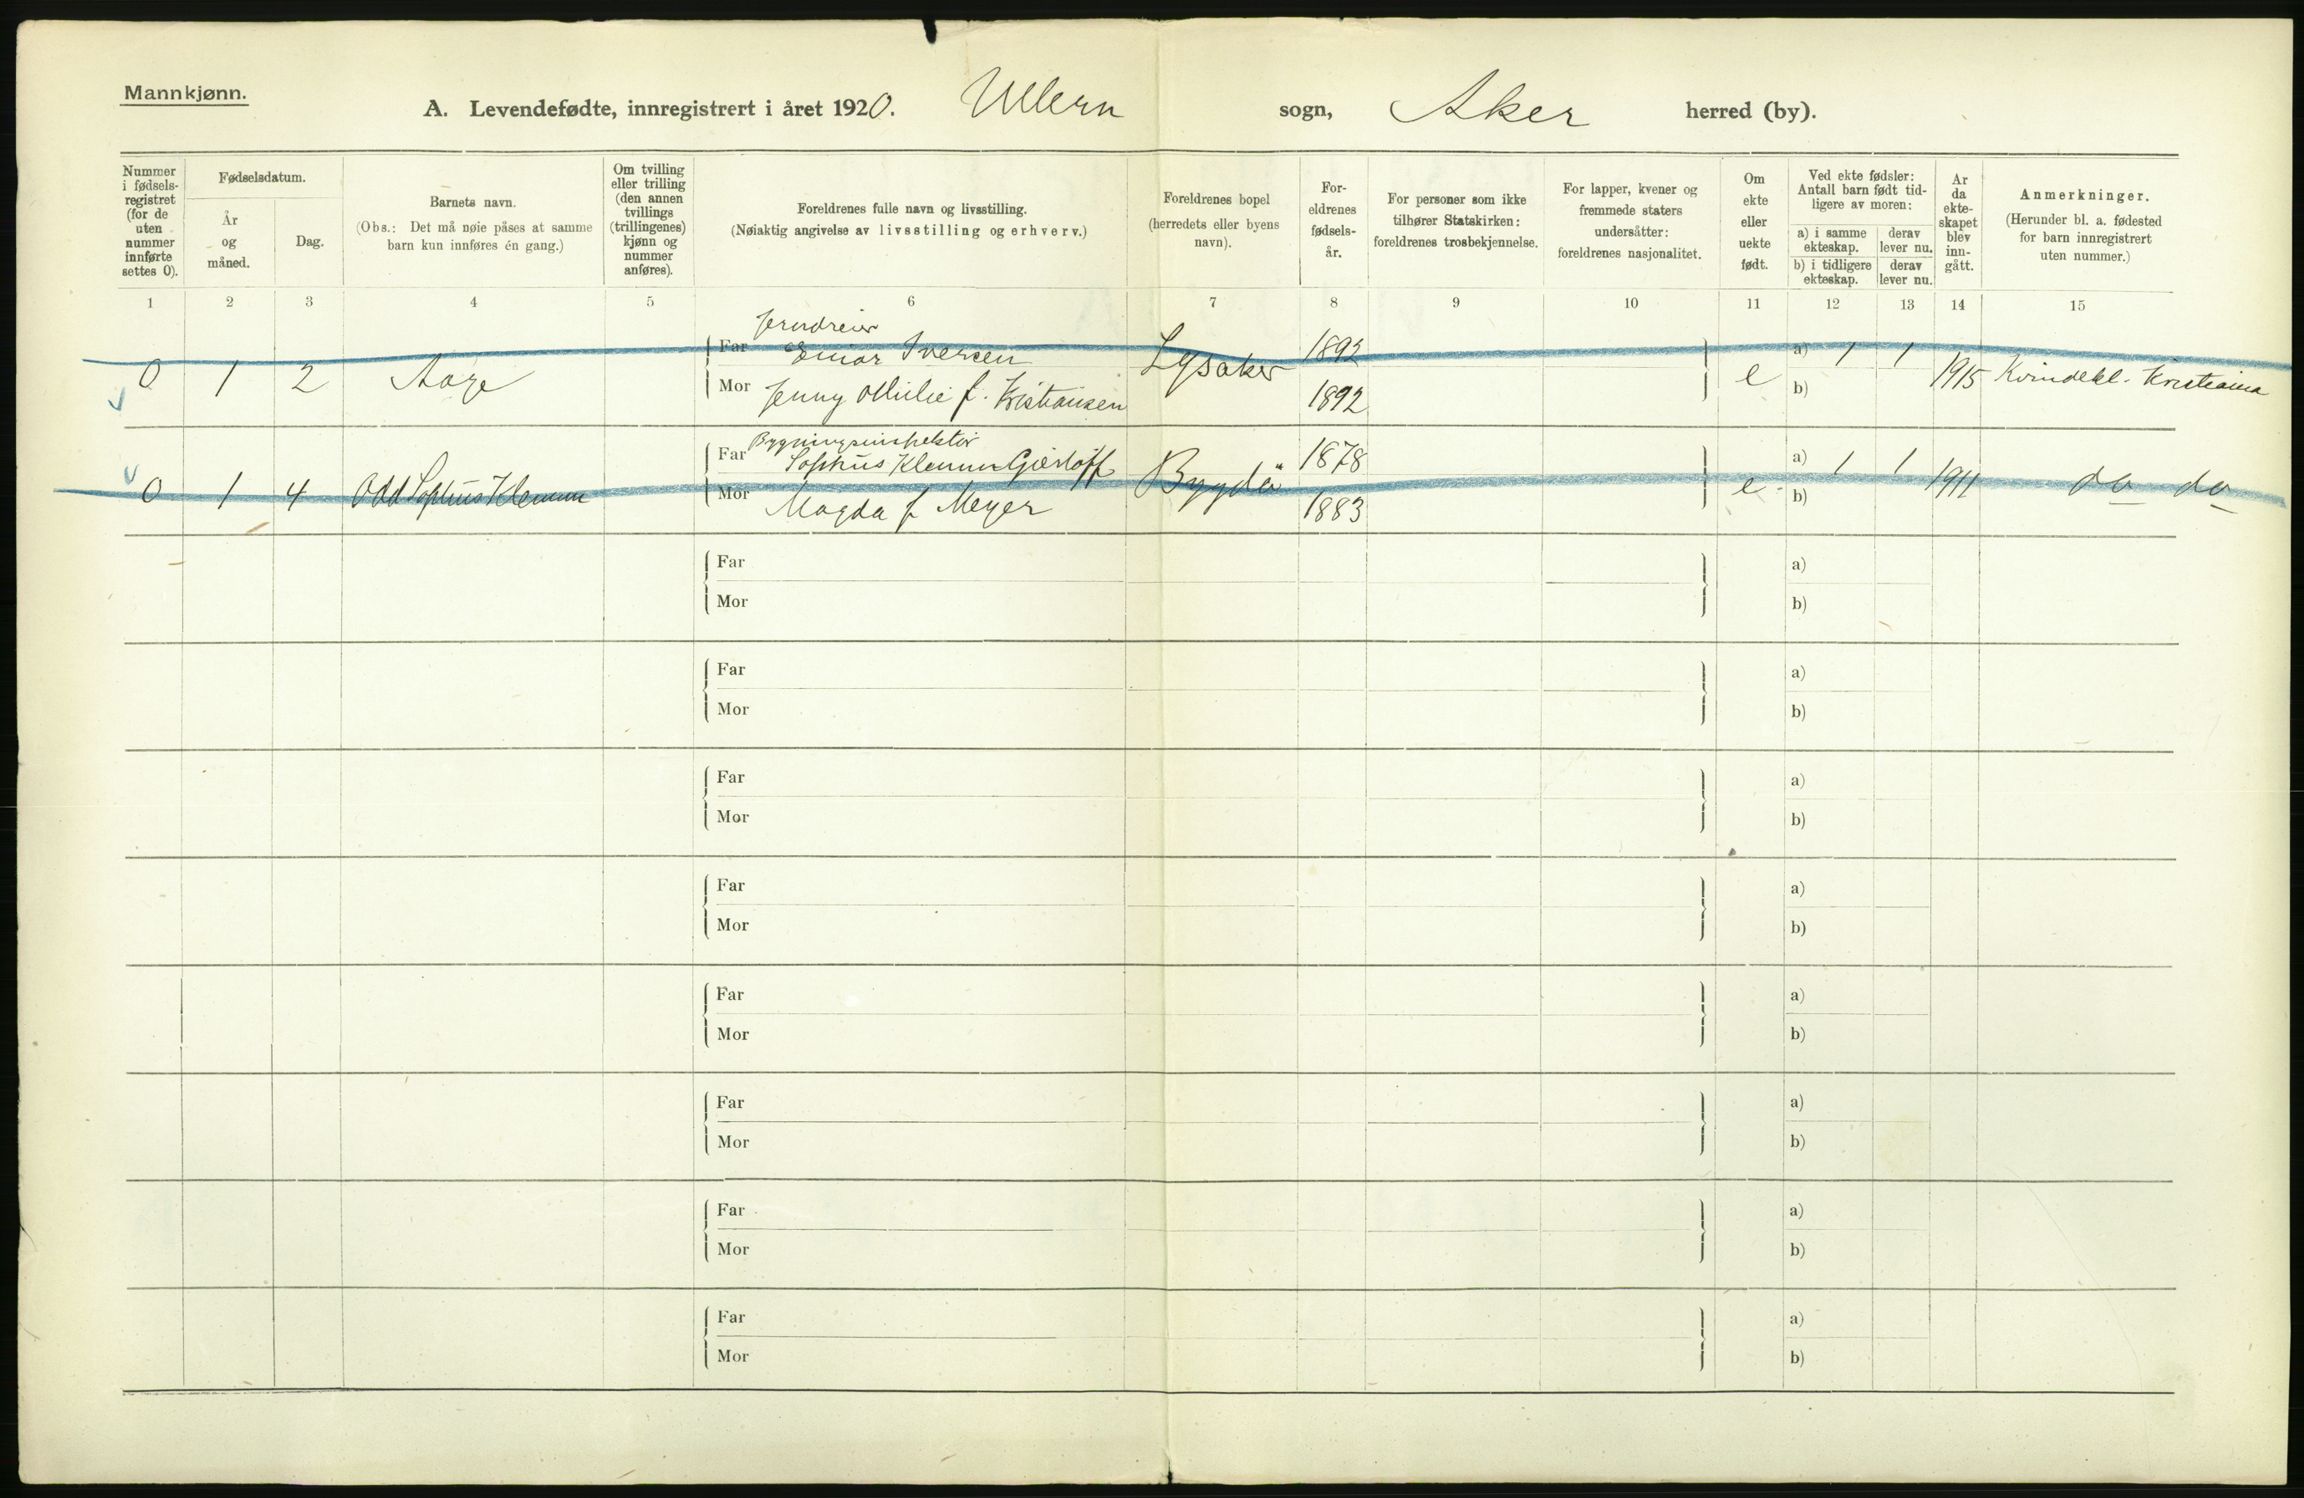 Mannkjønn.
A. Levendefødte, innregistrert i året 1920. Ullern sogn, Aker herred (by).
Nummer i fødsels-registret (for de uten nummer innførte settes 0).
Fødselsdatum.
År og måned.
Dag.
Barnets navn.
(Obs.: Det må nøie påses at samme barn kun innføres én gang.)
Om tvilling eller trilling (den annen tvillings (trillingenes) kjønn og nummer anføres).
Foreldrenes fulle navn og livsstilling.
(Nøiaktig angivelse av livsstilling og erhverv.)
Foreldrenes bopel
(herredets eller byens navn).
For-eldrenes fødsels-år.
For personer som ikke tilhører Statskirken: foreldrenes trosbekjennelse.
For lapper, kvener og fremmede staters undersåtter: foreldrenes nasjonalitet.
Om ekte eller uekte født.
Ved ekte fødsler: Antall barn født tid-ligere av moren:
a) i samme ekteskap.
derav lever nu.
b) i tidligere ekteskap.
derav lever nu.
År da ekte-skapet blev inn-gått.
Anmerkninger.
(Herunder bl. a. fødested for barn innregistrert uten nummer.)
1 2 3 4 5 6 7 8 9 10 11 12 13 14 15
Jerndreier
0 1 2 Aage Far Einar Iversen Lysaker 1892 e a) 1 1 1915 Kvindekl. Kristiania
Mor Jenny Otilie f. Kristiansen 1892 b)
Bygningsinspektør
0 1 4 Odd Sophus Klemm Far Sophus Klemm Gierløff Bygdö 1878 e a) 1 1 1911 do do
Mor Magda f Meyer 1883 b)
Far a)
Mor b)
Far a)
Mor b)
Far a)
Mor b)
Far a)
Mor b)
Far a)
Mor b)
Far a)
Mor b)
Far a)
Mor b)
Far a)
Mor b)